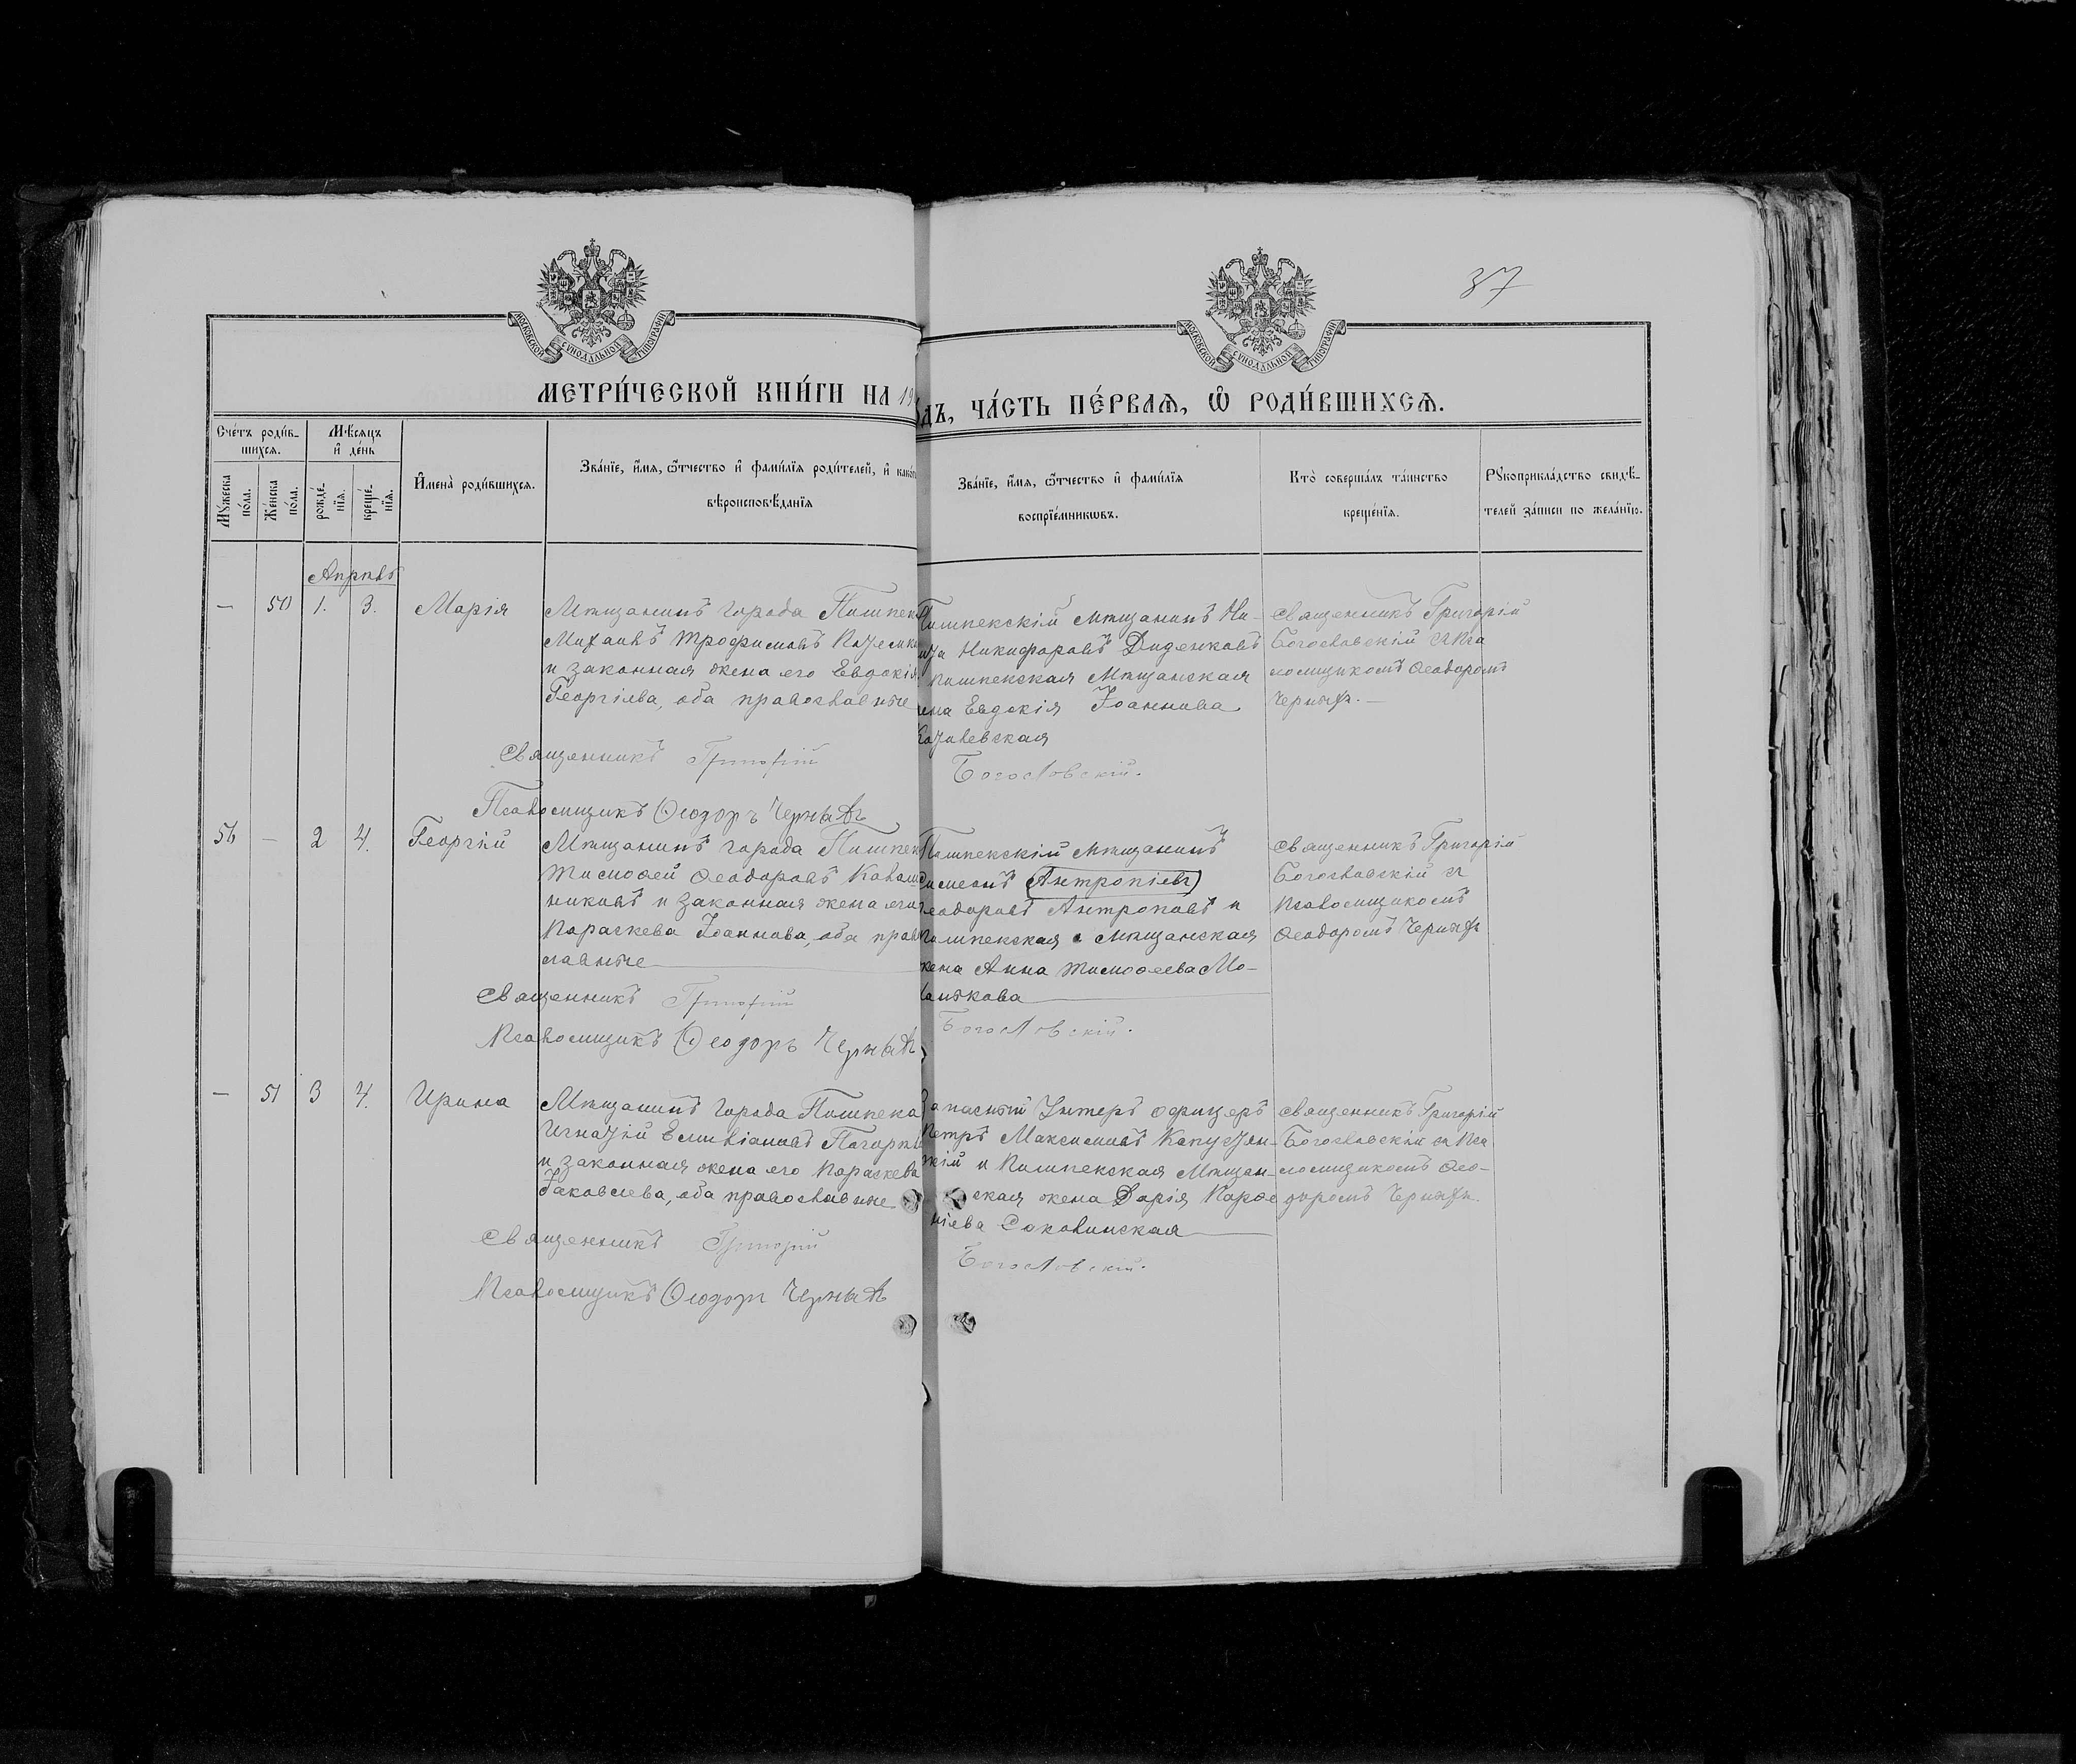 37
МОСКОВСКОЙ СУНОДАЛЬНОЙ ТИПОГРАФІИ
МОСКОВСКОЙ СУНОДАЛЬНОЙ ТИПОГРАФІИ
МЕТРИ́ЧЕСКОЙ КНИ́ГИ НА 19
дъ, ЧА́СТЬ ПЕ́РВАѦ, Ѡ҆ РОДИ́ВШИХСѦ.
Сче́тъ роди́в-
шихсѧ.
Мꙋжеска по́ла.
Же́нска по́ла.
Мѣ́сѧцъ
и҆ де́нь
рожде́-
нїѧ.
креще́-
нїѧ.
И҆мена̀ роди́вшихсѧ.
Зва́нїе, и҆́мѧ, ѻ҆́тчество и҆ фами́лїѧ роди́телей, и҆ како́г
вѣроисповѣ́данїѧ
Зва́нїе, и҆́мѧ, ѻ҆́тчество и҆ фами́лїѧ
воспрїе́мникѡвъ.
Кто̀ соверша́лъ та́инство
креще́нїѧ.
Рꙋкоприкла́дство свидѣ́-
телей за́писи по жела́нїю.
Апрѣль
— 50 1. 3. Марія
Мѣщанинъ города Пишпека
Михаилъ Трофимовъ
и законная жена его Евдокія
Георгіева, оба православные
Пишпекскій мѣщанинъ Ни-
Никифоровъ Диденковъ
пишпекская мѣщанская
жена Евдокія Іоаннова
Священникъ Григорій
Богословскій съ Пса
ломщикомъ Ѳеодоромъ
Священникъ Григорій Богословскій.
Псаломщикъ Ѳеодоръ
56 — 2 4. Георгій
Мѣщанинъ города Пишпека
Тимоѳей Ѳеодоровъ
никовъ и законная жена его
Параскева Іоаннова, оба прав
славные
Пишпекскій мѣщанинъ
Симеонъ (Антропіевъ)
Ѳеодоровъ Антроповъ и
Пишпекская мѣщанская
жена Анна Тимоѳеева Мо-
Священникъ Григорій
Богословскій съ
Псаломщикомъ
Ѳеодоромъ
Священникъ Григорій Богословскій.
Псаломщикъ Ѳеодоръ
— 51 3 4. Ирина
Мѣщанинъ города Пишпека
Игнатій Емиліановъ
и законная жена его Параскева
Іаковлева, оба православные
Запасный Унтеръ офицеръ
Петръ Максимовъ Капустян-
скій и Пишпекская Мѣщан-
ская жена Дарія
Соколинская
Священникъ Григорій
Богословскій съ Пса
ломщикомъ Ѳео-
доромъ
Священникъ Григорій Богословскій.
Псаломщикъ Ѳеодоръ